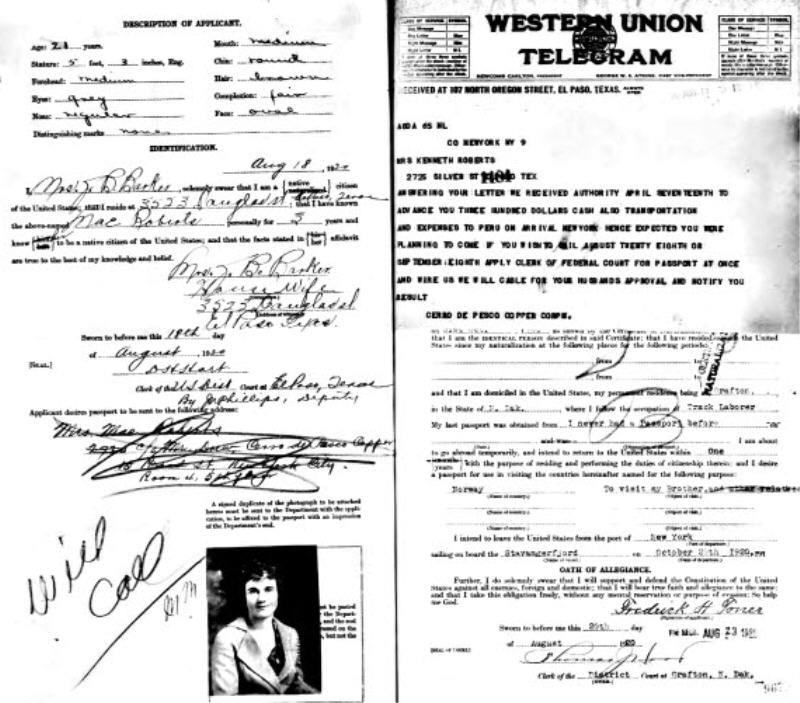 DESCRIPTION OF APPLICANT.
Age: 21 years.
Mouth: medium
Stature: 5 feet, 3 inches, Eng.
Chin: round
Forehead: medium
Hair: brown
Eyes: grey
Complexion: fair
Nose: regular
Face: oval
Distinguishing marks none
IDENTIFICATION.
Aug 18, 1920
I, Mrs. J. B. Barker, solemnly swear that I am a native naturalized citizen
of the United States; that I reside at 3523 Douglas st, El Paso, Texas; that I have known
the above-named Mae Roberts personally for 3 years and
know him her to be a native citizen of the United States; and that the facts stated in his her affidavit
are true to the best of my knowledge and belief.
Mrs. J. B. Barker.
House Wife
3523 Douglas st
El Paso Texas.
Sworn to before me this 18th day
of August, 1920
[SEAL.]
Clerk of the US Dist Court at El Paso, Texas
By Phillips, Deputy
Applicant desires passport to be sent to the following address:
Mrs. Mae Roberts
Cerro de Pasco Copper
15 St. New York City.
Room
A signed duplicate of the photograph to be attached
hereto must be sent to the Department with the appli-
cation, to be affixed to the passport with an impression
of the Department's seal.
Will
Call
WESTERN UNION
TELEGRAM
CLASS OF SERVICE SYMBOL
CLASS OF SERVICE SYMBOL
NEWCOMB CARLTON, PRESIDENT
GEORGE W. E. ATKINS, FIRST VICE-PRESIDENT
RECEIVED AT 107 NORTH OREGON STREET, EL PASO, TEXAS. ALWAYS OPEN
A80A 65 NL
CO NEWYORK NY 9
MRS KENNETH ROBERTS
2725 SILVER ST TEX
ANSWERING YOUR LETTER WE RECEIVED AUTHORITY APRIL SEVENTEENTH TO
ADVANCE YOU THREE HUNDRED DOLLARS CASH ALSO TRANSPORTATION
AND EXPENSES TO PERU ON ARRIVAL NEWYORK HENCE EXPECTED YOU WERE
PLANNING TO COME IF YOU WISH TO SAIL AUGUST TWENTY EIGHTH OR
SEPTEMBER EIGHTH APPLY CLERK OF FEDERAL COURT FOR PASSPORT AT ONCE
AND WIRE US WE WILL CABLE FOR YOUR HUSBANDS APPROVAL AND NOTIFY YOU
RESULT
CERRO DE PESCO COPPER CORPN.
that I am the IDENTICAL PERSON described in said Certificate; that I have resided in the United
States since my naturalization at the following places for the following periods:
from to
from to
and that I am domiciled in the United States, my permanent residence being at Grafton,
in the State of N. Dak., where I follow the occupation of Track Laborer
My last passport was obtained from I never had a Passport before
I am about
to go abroad temporarily, and intend to return to the United States within One
months years with the purpose of residing and performing the duties of citizenship therein; and I desire
a passport for use in visiting the countries hereinafter named for the following purpose:
Norway To visit my Brother and other relatives
(Name of country.) (Object of visit.)
(Name of country.) (Object of visit.)
(Name of country.) (Object of visit.)
I intend to leave the United States from the port of New York
(Port of departure.)
sailing on board the Stavangerfjord on October 28th 1920
(Name of vessel.) (Date of departure.)
OATH OF ALLEGIANCE.
Further, I do solemnly swear that I will support and defend the Constitution of the United
States against all enemies, foreign and domestic; that I will bear true faith and allegiance to the same;
and that I take this obligation freely, without any mental reservation or purpose of evasion: So help
me God.
Fredrick H Toner
(Signature of applicant.)
Sworn to before me this 20th day
of August 1920
AUG 23
Clerk of the District Court at Grafton, N. Dak.